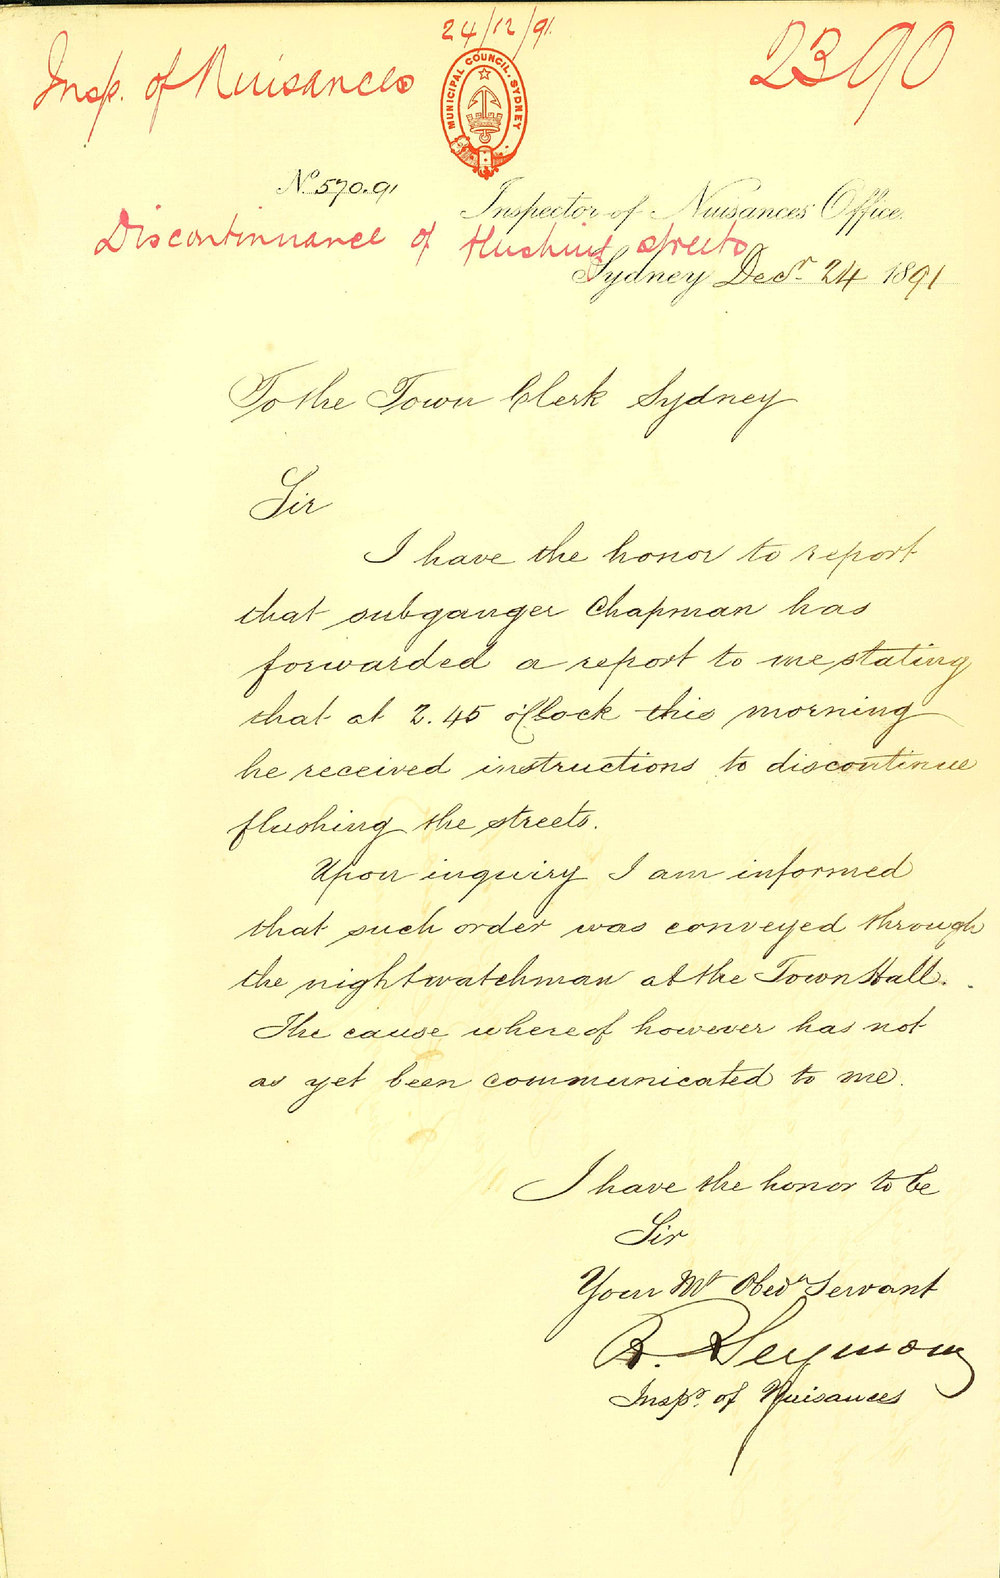 24/12/91
Insp. of Nuisances
2390
MUNICIPAL COUNCIL. SYDNEY
No 570.91
Inspector of Nuisances Office.
Discontinuance of flushing streets
Sydney Decr. 24 1891
To the Town Clerk Sydney
Sir
I have the honor to report
that subganger Chapman has
forwarded a report to me stating
that at 2.45 o'Clock this morning
he received instructions to discontinue
flushing the streets.
Upon inquiry I am informed
that such order was conveyed through
the nightwatchman at the Town Hall.
The cause whereof however has not
as yet been communicated to me.
I have the honor to be
Sir
Your Mt Obedt Servant
R. Seymour
Inspr. of Nuisances